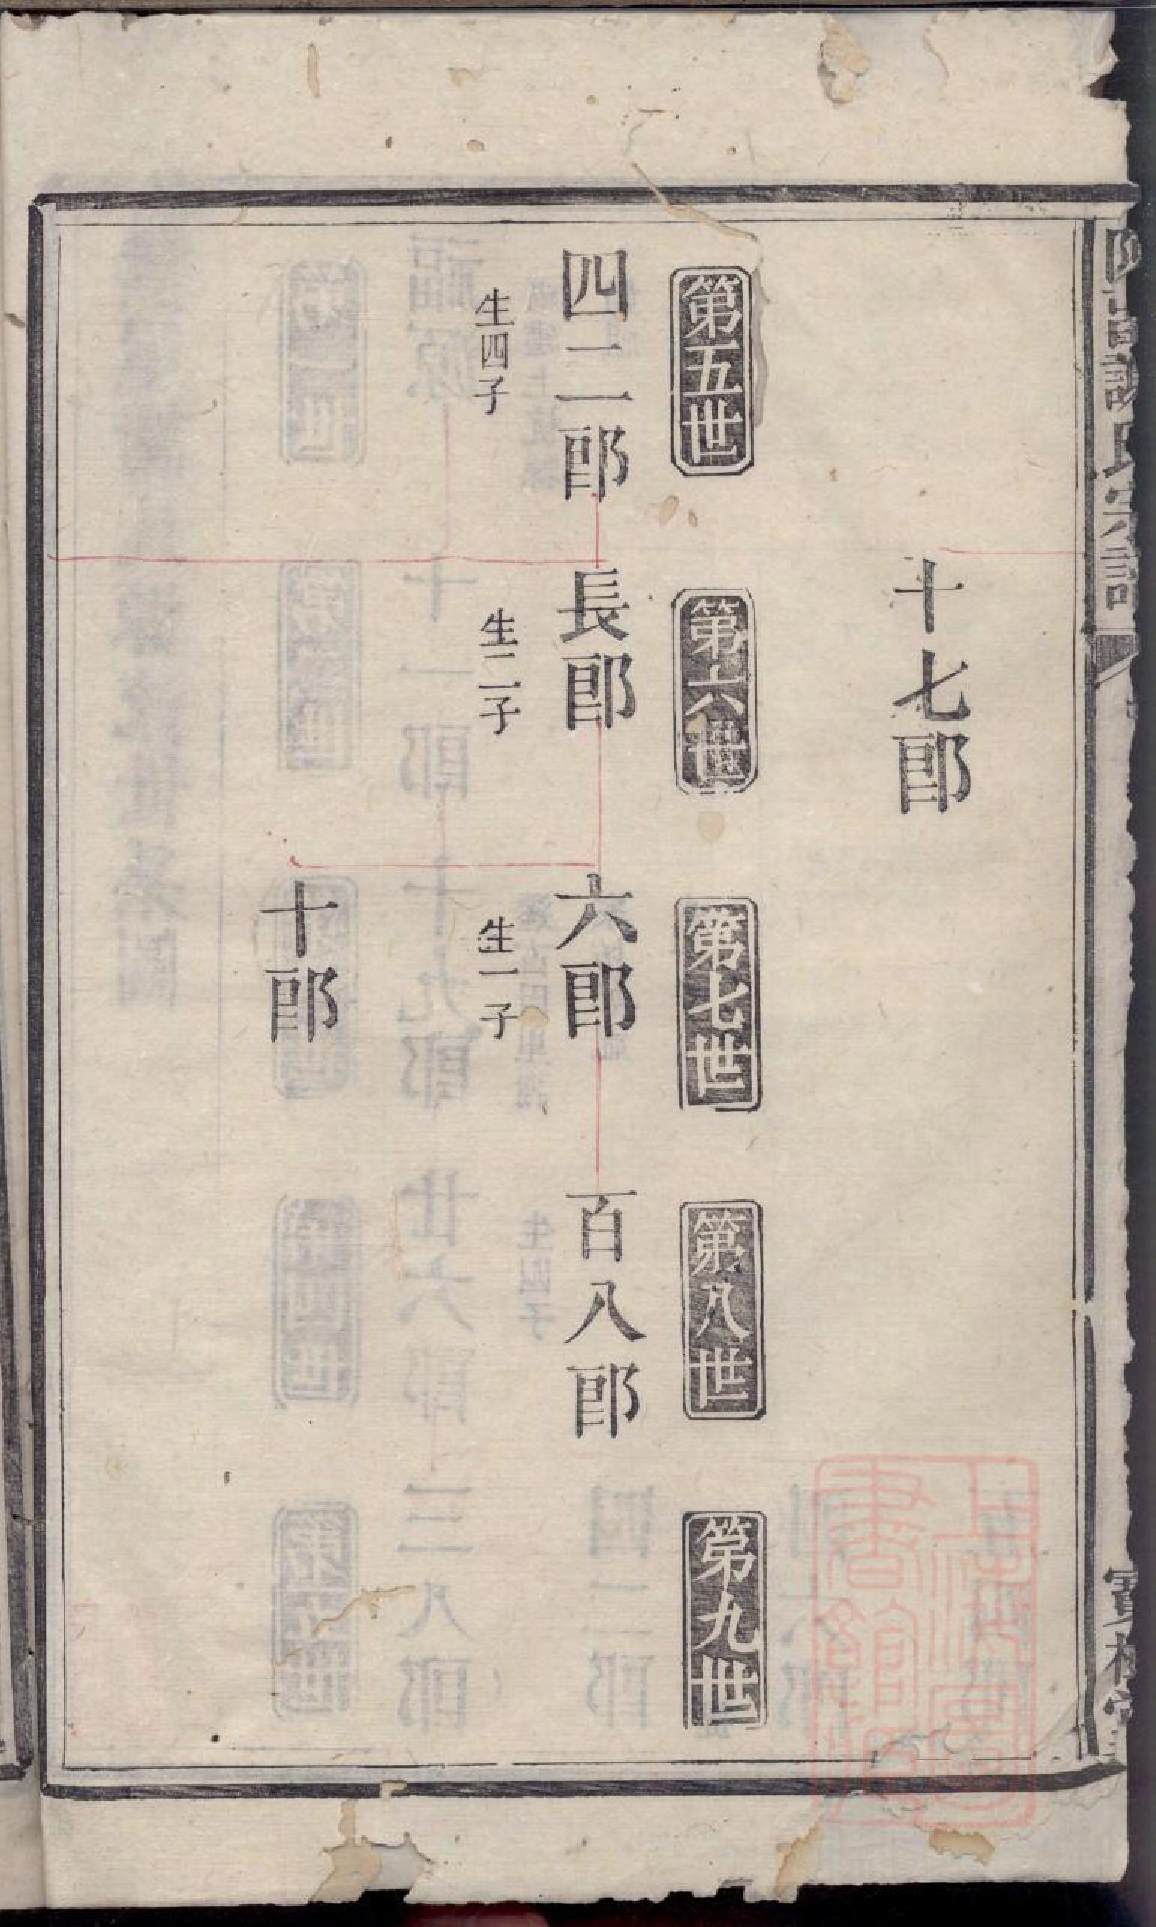 十七郎
第五世
第六世
第七世
第八世
第九世
四二郎
長郎
六郎
百八郎
生四子
生二子
生一子
十郎